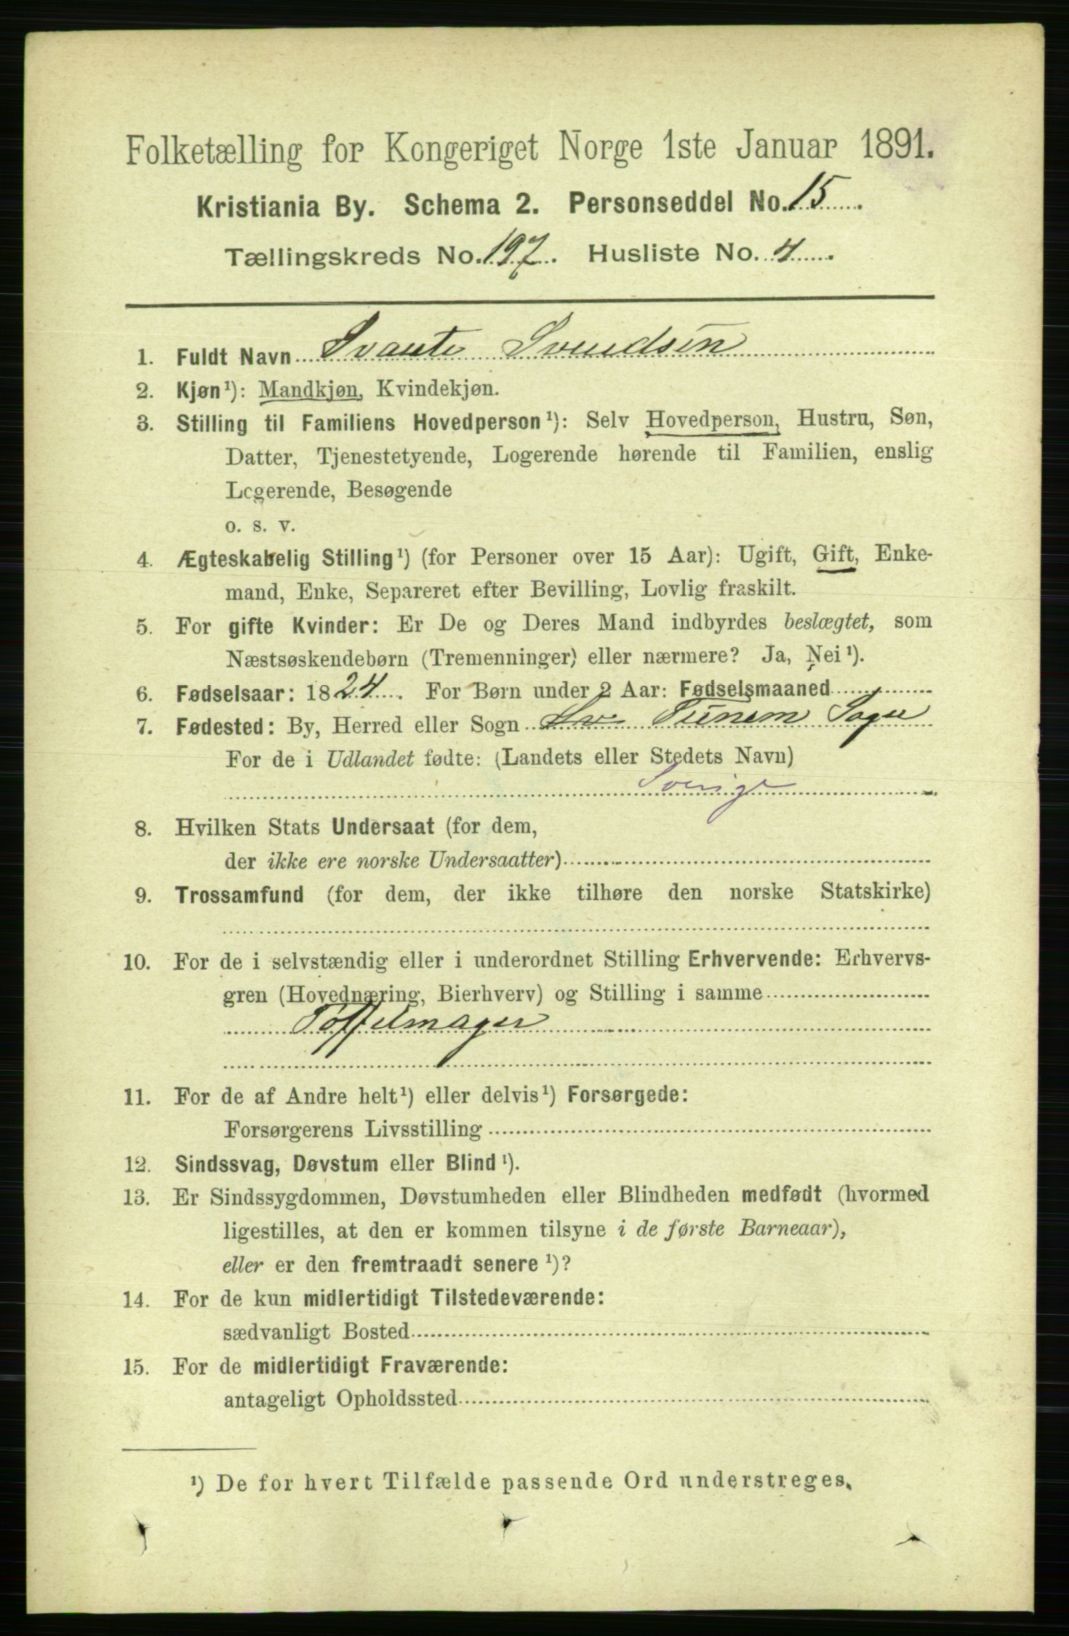 Folketælling for Kongeriget Norge 1ste Januar 1891.
Kristiania By. Schema 2. Personseddel No. 15.
Tællingskreds No. 197. Husliste No. 4.
1. Fuldt Navn Svante Svendsen
2. Kjøn¹): Mandkjøn, Kvindekjøn.
3. Stilling til Familiens Hovedperson¹): Selv Hovedperson, Hustru, Søn,
Datter, Tjenestetyende, Logerende hørende til Familien, enslig
Logerende, Besøgende
o. s. v.
4. Ægteskabelig Stilling¹) (for Personer over 15 Aar): Ugift, Gift, Enke-
mand, Enke, Separeret efter Bevilling, Lovlig fraskilt.
5. For gifte Kvinder: Er De og Deres Mand indbyrdes beslægtet, som
Næstsøskendebørn (Tremenninger) eller nærmere? Ja, Nei¹).
6. Fødselsaar: 1824. For Børn under 2 Aar: Fødselsmaaned
7. Fødested: By, Herred eller Sogn Tunem Sogn
For de i Udlandet fødte: (Landets eller Stedets Navn)
Sverige
8. Hvilken Stats Undersaat (for dem,
der ikke ere norske Undersaatter)
9. Trossamfund (for dem, der ikke tilhøre den norske Statskirke)
10. For de i selvstændig eller i underordnet Stilling Erhvervende: Erhvervs-
gren (Hovednæring, Bierhverv) og Stilling i samme
Tøffelmager
11. For de af Andre helt¹) eller delvis¹) Forsørgede:
Forsørgerens Livsstilling
12. Sindssvag, Døvstum eller Blind¹).
13. Er Sindssygdommen, Døvstumheden eller Blindheden medfødt (hvormed
ligestilles, at den er kommen tilsyne i de første Barneaar),
eller er den fremtraadt senere¹)?
14. For de kun midlertidigt Tilstedeværende:
sædvanligt Bosted
15. For de midlertidigt Fraværende:
antageligt Opholdssted
¹) De for hvert Tilfælde passende Ord understreges.